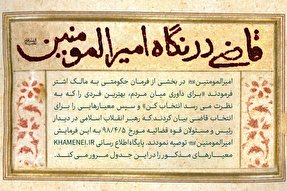 قاضی در نگاه امیرالمومنین
امیرالمومنین در بخشی از فرمان حکومتی به مالک اشتر
فرمودند «برای داوری میان مردم، بهترین فردی را که به
نظرت می رسد انتخاب کن» و سپس معیارهایی را برای
انتخاب قاضی بیان کردند که رهبر انقلاب اسلامی در دیدار
رئیس و مسئولان قوه قضائیه مورخ ۹۸/۴/۵ به این فرمایش
امیرالمومنین توصیه نمودند. پایگاه اطلاع رسانی KHAMENEI.IR
معیارهای مذکور را در این جدول مرور می کند.